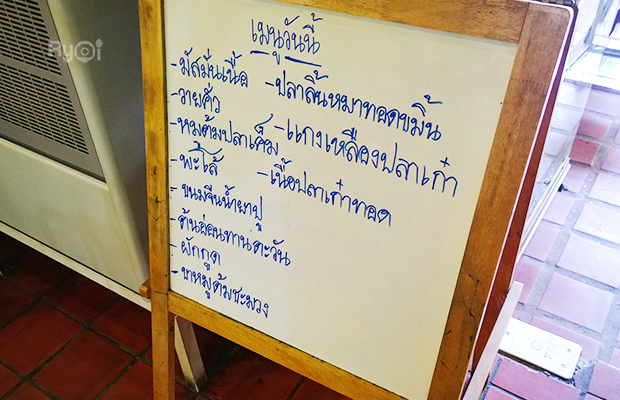 Ryoi
เมนูวันนี้
-มัสมั่นเนื้อ
-วายคั่ว
-หมูต้มปลาเค็ม
-พะโล้
-ขนมจีนน้ำยาปู
-ต้นอ่อนทานตะวัน
-ผักกูด
-ขาหมูต้มชะมวง
-ปลาลิ้นหมาทอดขมิ้น
-แกงเหลืองปลาเก๋า
-เนื้อปลาเก๋าทอด